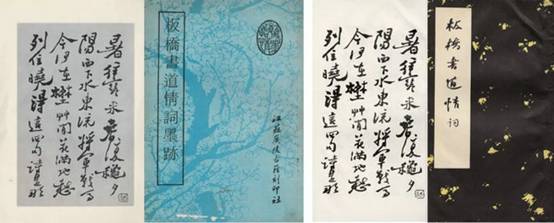 暑往寒來春復穐夕
陽西下水東流將軍戰馬
今何在埜艸閒花滿地愁
列位曉得這四句詩是那
板橋書道情詞墨跡
江蘇廣陵古籍刻印社
暑往寒來春復穐夕
陽西下水東流將軍戰馬
今何在埜艸閒花滿地愁
列位曉得這四句詩是那
板橋書道情詞